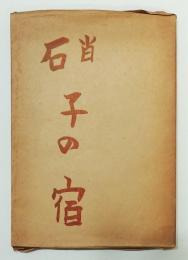 硝子の宿